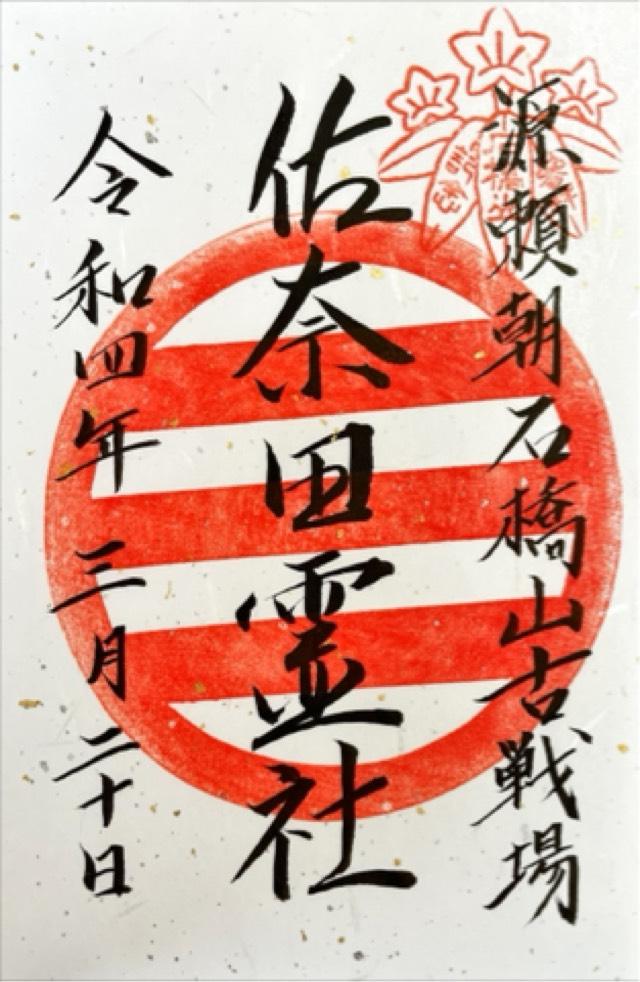 源頼朝石橋山古戦場
佐奈田霊社
令和四年三月二十日